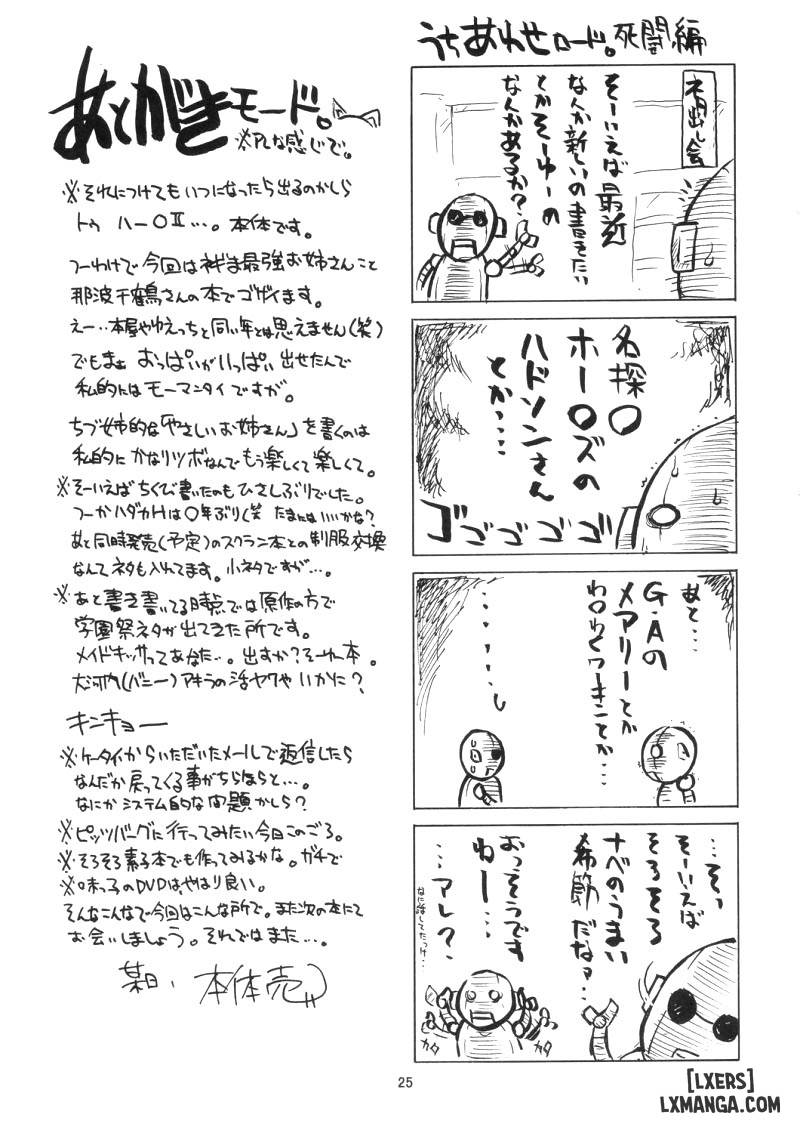 うちあわせロード。死闘編
ネタ出し会
そーいえば最近
なんか新しいの書きたい
とかそーゆーの
なんかあるか?
名探〇
ホー〇ズの
ハドソンさん
とか‥‥
ゴゴゴゴゴ
あと‥‥
G・Aの
メアリーとか
わ〇わくワーキンとか‥‥
‥‥そっ
そーいえば
そろそろ
ナベのうまい
季節だなァ‥‥
おっそうです
ねー‥‥
‥‥アレ?
なに話してたっけ‥‥
カタ
カタ
あとがきモード。
※PLな感じで。
※それにつけてもいつになったら出るのかしら
トゥ ハー〇Ⅱ‥‥。本体です。
つーわけで今回はネギま最強お姉さんこと
那波千鶴さんの本でゴザイます。
えー‥本屋やゆえっちと同い年とは思えません(笑)
でもまぁ おっぱいがいっぱい出せたんで
私的にはモーマンタイですが。
ちづ姉的な「やさしいお姉さん」を書くのは
私的にかなりツボなんでもう楽しくて楽しくて。
※そーいえばちくび書いたのもひさしぶりでした。
つーかハダカHは〇年ぶり(笑 たまにはいいかな?
あと同時発売(予定)のスクラン本との制服交換
なんてネタも入れてます。小ネタですが‥‥。
※あと書き書いてる時点では原作の方で
学園祭ネタが出てきた所です。
メイドキッサってあなた‥‥。出すか?そーゆー本。
大河内(バニー)アキラの活ヤクやいかに?
キンキョー
※ケータイからいただいたメールで返信したら
なんだか戻ってくる事がちらほらと‥‥。
なにかシステム的な問題かしら?
※ピッツバーグに行ってみたい今日このごろ。
※そろそろ素子本でも作ってみるかな。ガチで
※味っ子のDVDはやはり良い。
そんなこんなで今回はこんな所で。また次の本にて
お会いしましょう。それではまた‥‥。
某日、本体売
25
[LXERS]
LXMANGA.COM